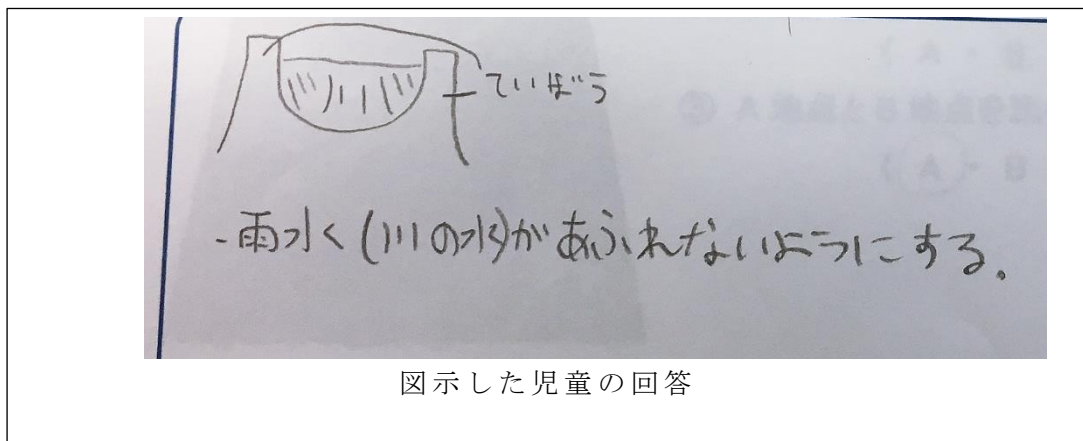 ていぼう
-雨水く(川の水)があふれないようにする。
図示した児童の回答